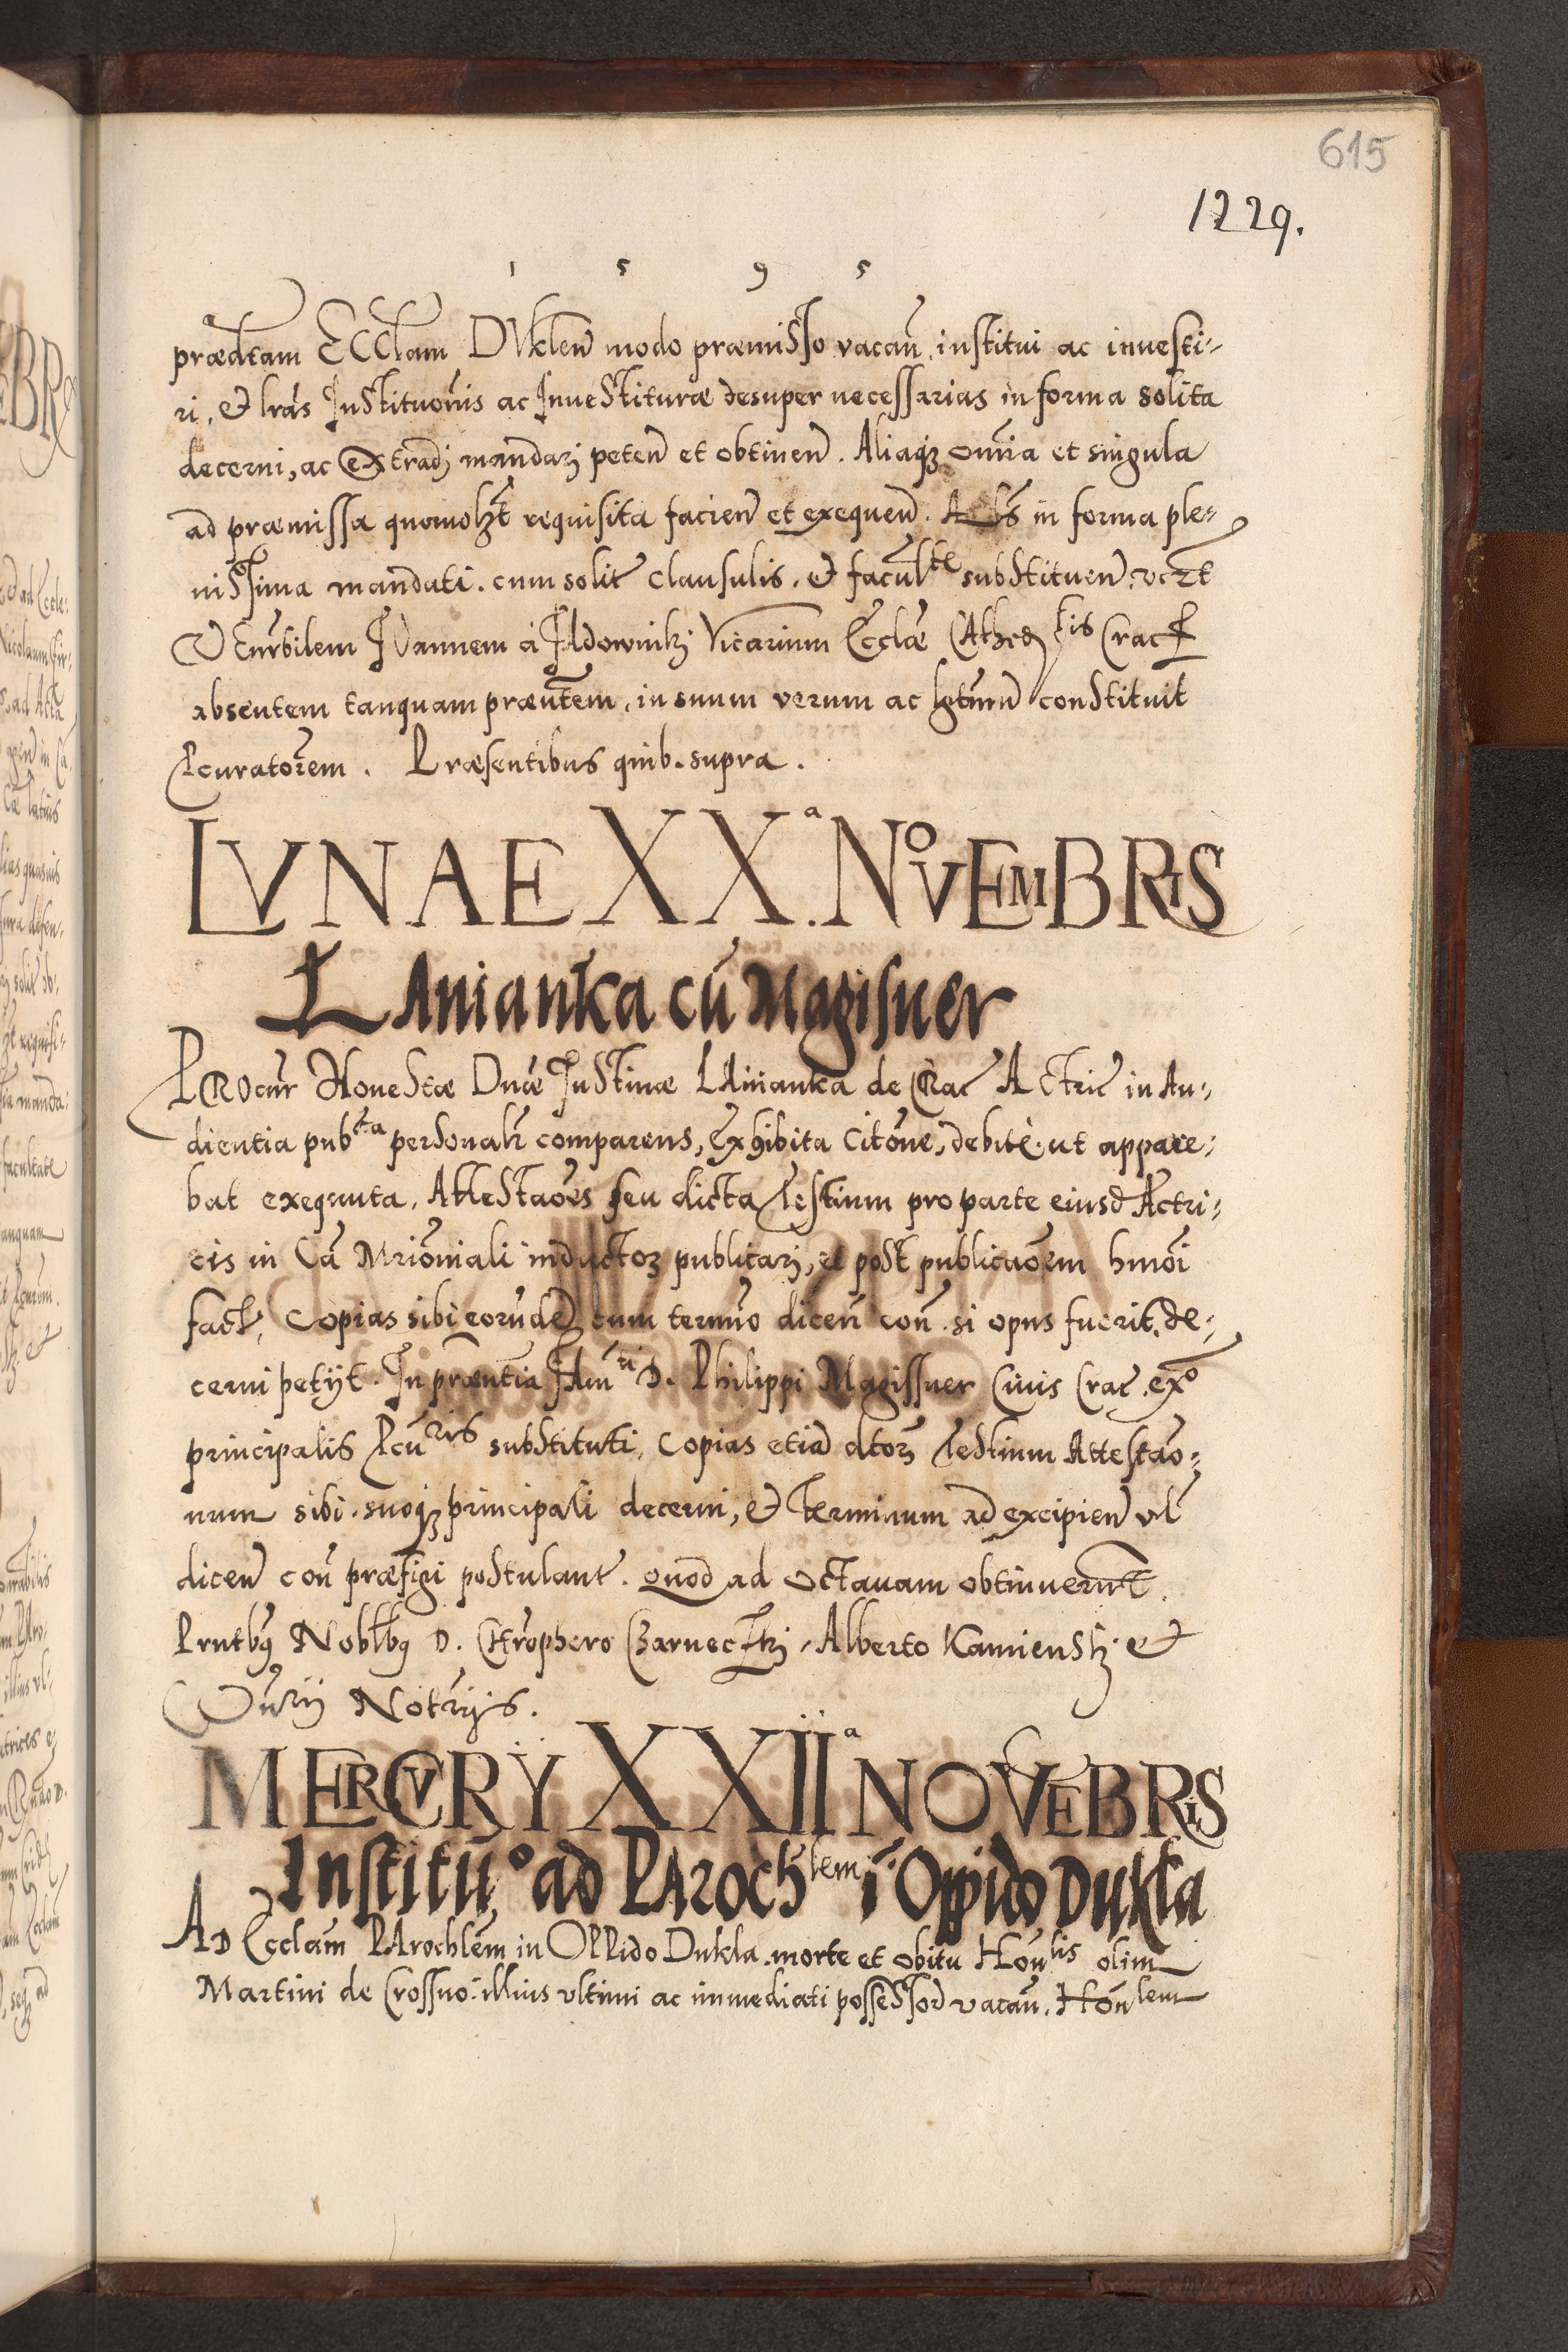 615
1229.
1 5 9 5
prædtam ECClam DUklen̄ modo præmisso vacan̄, institui ac inuesti-
ri, et lrās Institutionis ac Inuestituræ desuper necessarias in forma solita
decerni, ac extradj mandarj peten̄ et obtinen̄. Aliaqȝ omīa et singula
ad præmissa quomolȝt requisita facien̄ et exequen̄. in forma ple-
nissima mandati. cum solit clausulis. et facul^te substituen̄.
Venrbilem Ioannem à Vicarium Ecclæ Crac
absentem tanquam præntem, in suum verum ac constituit
Pcuratorem. Præsentibus quib. supra.
LVNAE XX.ª NOVEMBRIS
LAnianka cū Magisner
PROcur Honestæ Dnæ Iustinæ LAnianka de CRac Actric in Au-
dientia pub^ca personalr comparens, Exhibita Citōne, debitè ut appare-
bat exequuta, Attestaōes seu dicta Testium pro parte eiusd Actri-
cis in Cā Mrioniali inductoȝ publicarj, et post publicaōem hmōi
fact, Copias sibi eorunde cum termīo dicen̄ con̄. si opus fuerit, de-
cerni petijt. In præntia D. Philippi Magissner Ciuis Crac. ex°
principalis Pcu^ris substituti, Copias etiā dtorȝ Testium Attestao-
num sibi. suoqȝ principali decerni, et Terminum ad excipien̄ vl
dicen̄ con̄ præfigi postulant. quod ad octauam obtinuerūt.
Prntbȝ Noblbȝ D. Chrophero Czarneczkj, Alberto Kamienskȝ. et
Notrijs.
MERCVRY XXIIª NOVEBRIS
Institū° ad PAroch^lem ī Oppido Dukla
AD Ecclām PArochlem in OPPido Dukla. morte et obitu Hon^lis olim
Martini de Crossno. illius vltimi ac immediati possessor vacan̄. Hon^lem